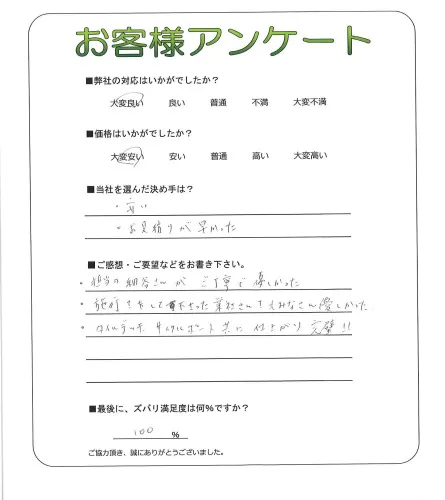 お客様アンケート
■弊社の対応はいかがでしたか？
大変良い 良い 普通 不満 大変不満
■価格はいかがでしたか？
大変安い 安い 普通 高い 大変高い
■当社を選んだ決め手は？
・安い
・お見積りが早かった
■ご感想・ご要望などをお書き下さい。
・担当の細谷さんが ご丁寧で優しかった
・施行をして下さった業社さんもみなさん優しかった
・タイルデッキ サイクルポート共に 仕上がり完璧!!
■最後に、ズバリ満足度は何％ですか？
100 %
ご協力頂き、誠にありがとうございました。